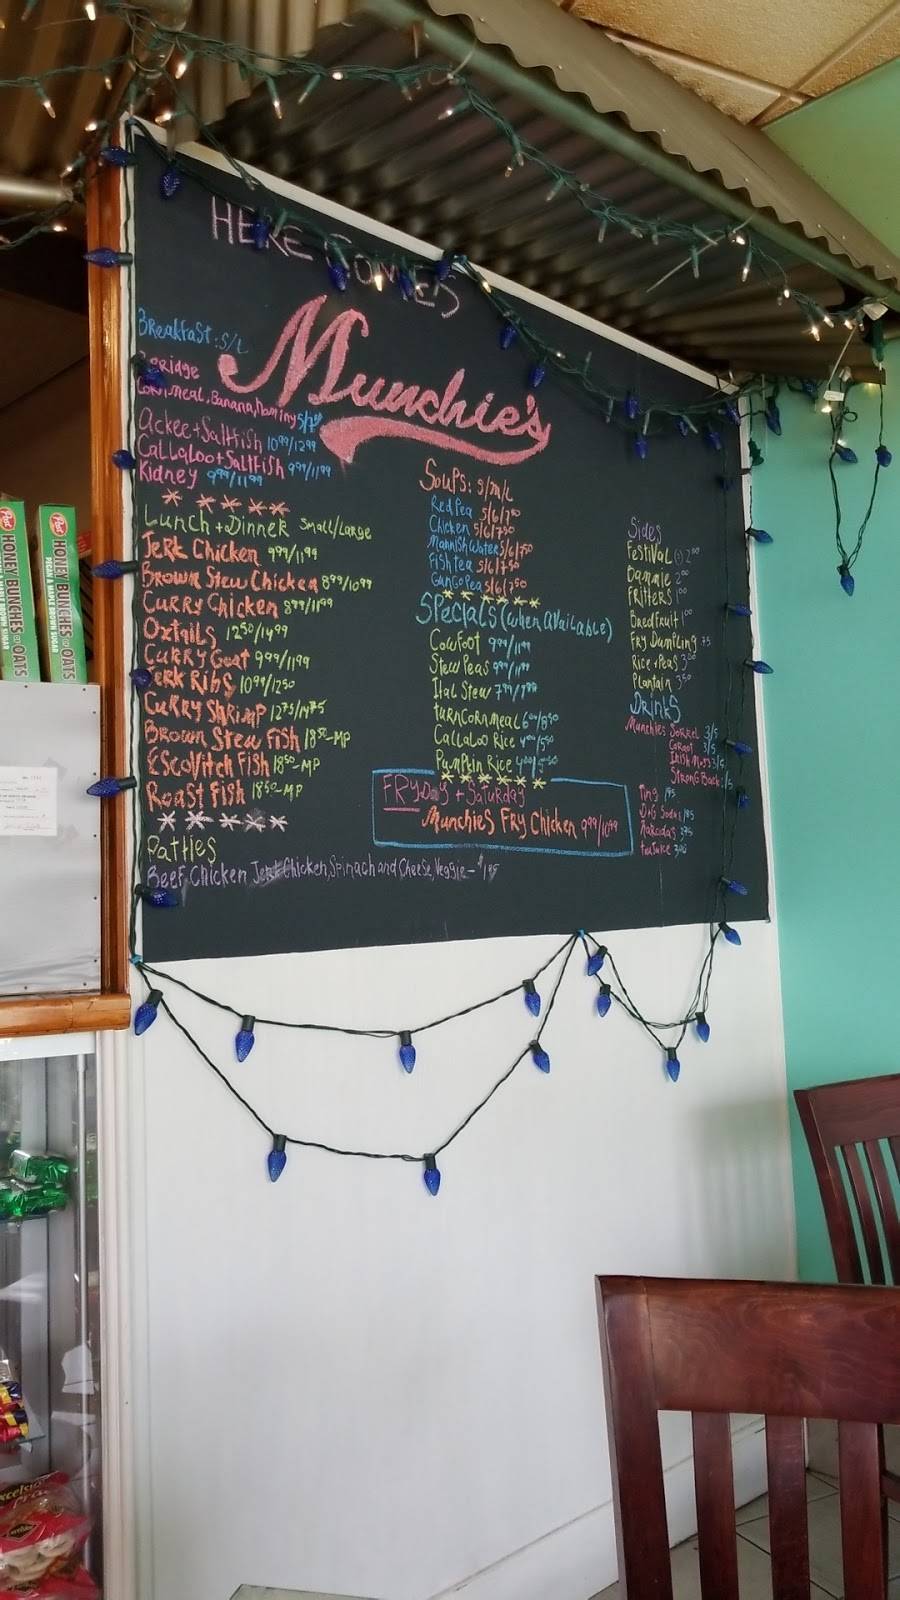 HERE COMES
Munchie's
Breakfast: S/L
Poridge
Cornmeal, Banana, Hominy 5/7.50
Ackee + Saltfish 10.99/12.99
Callaloo + Saltfish 9.99/11.99
Kidney 9.99/11.99
* * * * *
Lunch + Dinner Small/Large
Jerk Chicken 9.99/11.99
Brown Stew Chicken 8.99/10.99
Curry Chicken 8.99/11.99
Oxtails 12.50/14.99
Curry Goat 9.99/11.99
Jerk Ribs 10.99/12.50
Curry Shrimp 12.75/14.75
Brown Stew Fish 18.50-MP
EScovitch Fish 18.50-MP
Roast Fish 18.50-MP
* * * * *
Patties
Beef, Chicken Jerk Chicken, Spinach and Cheese, Veggie - $1.85
Soups: S/M/L
Red Pea 5/6/7.50
Chicken 5/6/7.50
Mannish Water 5/6/7.50
Fish tea 5/6/7.50
Gungo Pea 5/6/7.50
* * * * * *
Specials (when available)
Cowfoot 9.99/11.99
Stew Peas 9.99/11.99
Ital Stew 7.99/9.99
turn cornmeal 6.00/8.50
Callaloo Rice 4.00/5.50
Pumpkin Rice 4.00/5.50
* * * * * *
FRYDay + Saturday
Munchies Fry Chicken 9.99/10.99
Sides
Festival 2.00
Bammie 2.00
Fritters 1.00
Breadfruit 1.00
Fry Dumpling .75
Rice + Peas 3.00
Plantain 3.50
Drinks
Munchies Sorrel 3/5
Carrot 3/5
Irish Moss 3/5
Strong Back
Ting 1.95
D+G Soda 1.85
Post
HONEY BUNCHES OF OATS
PECAN & MAPLE BROWN SUGAR
Post
HONEY BUNCHES OF OATS
PECAN & MAPLE BROWN SUGAR